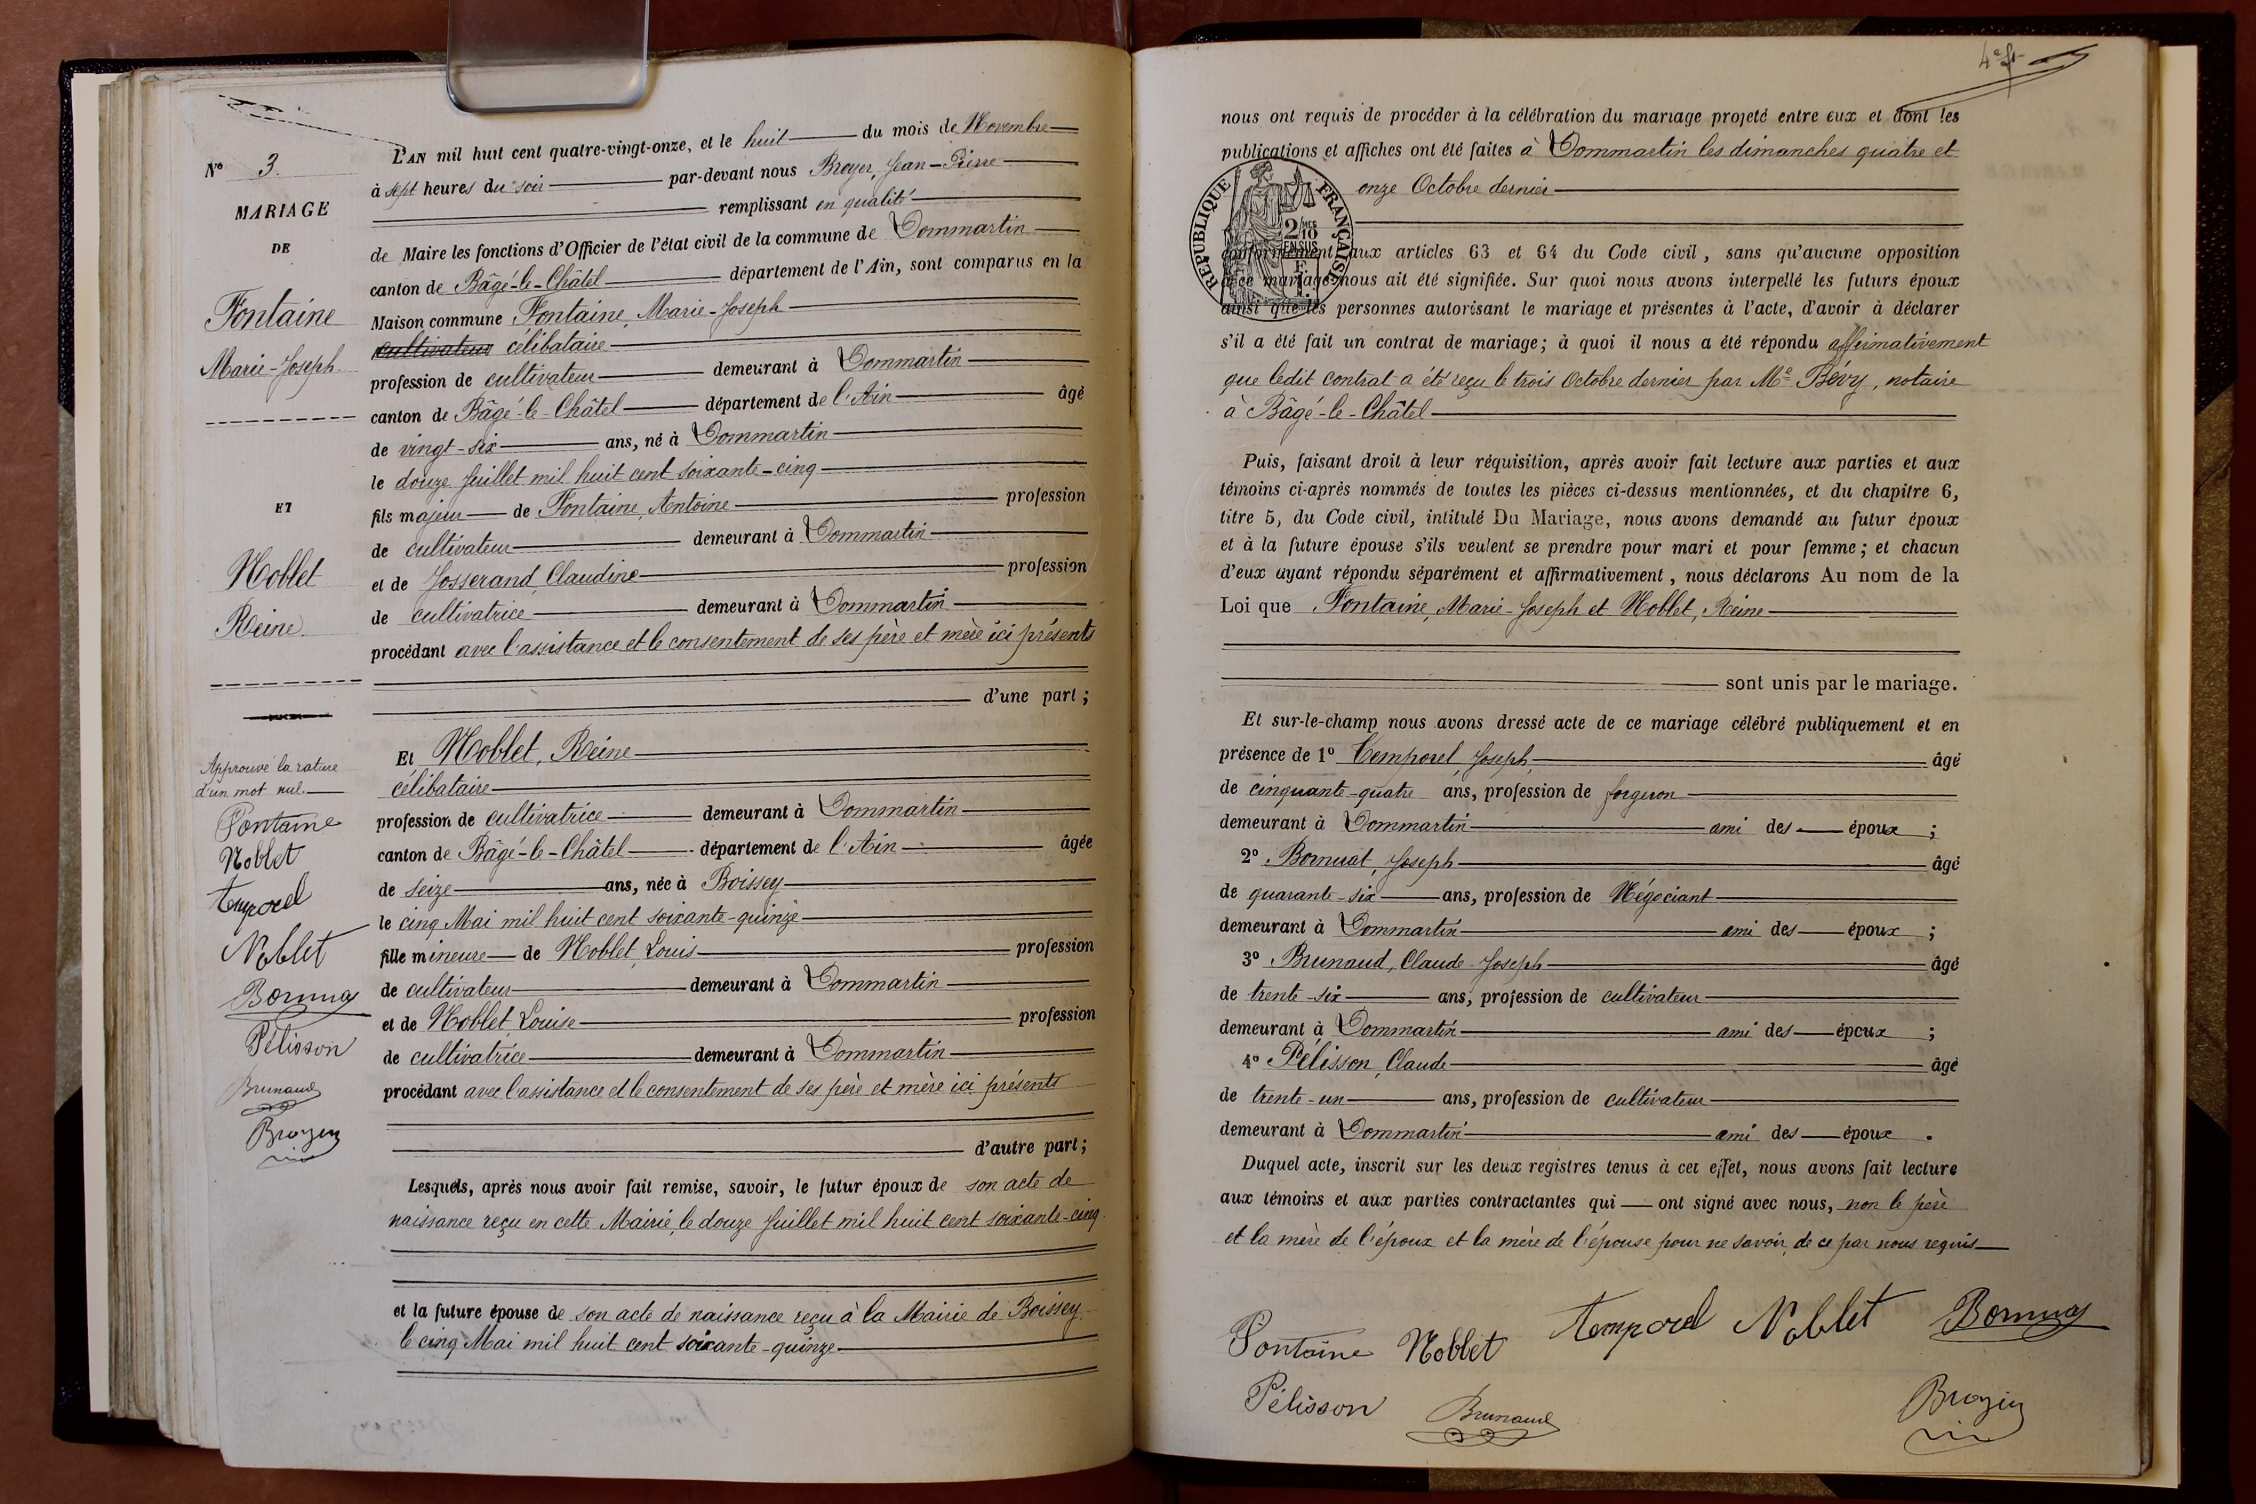 Nº 3.
MARIAGE
DE
Fontaine
Marie-Joseph
ET
Noblet
Reine
Approuvé la rature
d'un mot nul.
Fontaine
Noblet
Temporel
Noblet
Pélisson
Brunaud
Broyer
L'AN mil huit cent quatre-vingt-onze, et le huit du mois de Novembre
à sept heures du soir par-devant nous Broyer, Jean-Pierre
remplissant en qualité
de Maire les fonctions d'Officier de l'état civil de la commune de Dommartin
canton de Bâgé-le-Châtel département de l'Ain, sont comparus en la
Maison commune Fontaine, Marie-Joseph
cultivateur célibataire
profession de cultivateur demeurant à Dommartin
canton de Bâgé-le-Châtel département de l'Ain âgé
de vingt-six ans, né à Dommartin
le douze Juillet mil huit cent soixante-cinq
fils majeur de Fontaine, Antoine profession
de cultivateur demeurant à Dommartin
et de Josserand, Claudine profession
de cultivatrice demeurant à Dommartin
procédant avec l'assistance et le consentement de ses père et mère ici présents
d'une part ;
Et Noblet, Reine
célibataire
profession de cultivatrice demeurant à Dommartin
canton de Bâgé-le-Châtel département de l'Ain âgée
de seize ans, née à Boissey
le cinq Mai mil huit cent soixante-quinze
fille mineure de Noblet, Louis profession
de cultivateur demeurant à Dommartin
et de Noblet Louise profession
de cultivatrice demeurant à Dommartin
procédant avec l'assistance et le consentement de ses père et mère ici présents
d'autre part ;
Lesquels, après nous avoir fait remise, savoir, le futur époux de son acte de
naissance reçu en cette Mairie, le douze Juillet mil huit cent soixante-cinq
et la future épouse de son acte de naissance reçu à la Mairie de Boissey
le cinq Mai mil huit cent soixante-quinze
nous ont requis de procéder à la célébration du mariage projeté entre eux et dont les
publications et affiches ont été faites à Dommartin les dimanches quatre et
onze Octobre dernier
RÉPUBLIQUE FRANÇAISE
2/10
EN SUS
conformément aux articles 63 et 64 du Code civil, sans qu'aucune opposition
à ce mariage nous ait été signifiée. Sur quoi nous avons interpellé les futurs époux
ainsi que les personnes autorisant le mariage et présentes à l'acte, d'avoir à déclarer
s'il a été fait un contrat de mariage ; à quoi il nous a été répondu affirmativement
que ledit contrat a été reçu le trois Octobre dernier par Me Bévy, notaire
à Bâgé-le-Châtel
Puis, faisant droit à leur réquisition, après avoir fait lecture aux parties et aux
témoins ci-après nommés de toutes les pièces ci-dessus mentionnées, et du chapitre 6,
titre 5, du Code civil, intitulé Du Mariage, nous avons demandé au futur époux
et à la future épouse s'ils veulent se prendre pour mari et pour femme ; et chacun
d'eux ayant répondu séparément et affirmativement, nous déclarons Au nom de la
Loi que Fontaine, Marie-Joseph et Noblet, Reine
sont unis par le mariage.
Et sur-le-champ nous avons dressé acte de ce mariage célébré publiquement et en
présence de 1º Temporel, Joseph âgé
de cinquante-quatre ans, profession de forgeron
demeurant à Dommartin ami des époux ;
2º Bornuat, Joseph âgé
de quarante-six ans, profession de Négociant
demeurant à Dommartin ami des époux ;
3º Brunaud, Claude-Joseph âgé
de trente-six ans, profession de cultivateur
demeurant à Dommartin ami des époux ;
4º Pélisson, Claude âgé
de trente-un ans, profession de cultivateur
demeurant à Dommartin ami des époux .
Duquel acte, inscrit sur les deux registres tenus à cet effet, nous avons fait lecture
aux témoins et aux parties contractantes qui ont signé avec nous, non le père
et la mère de l'époux et la mère de l'épouse pour ne savoir, de ce par nous requis
Fontaine Noblet Temporel Noblet
Pélisson Brunaud Broyer